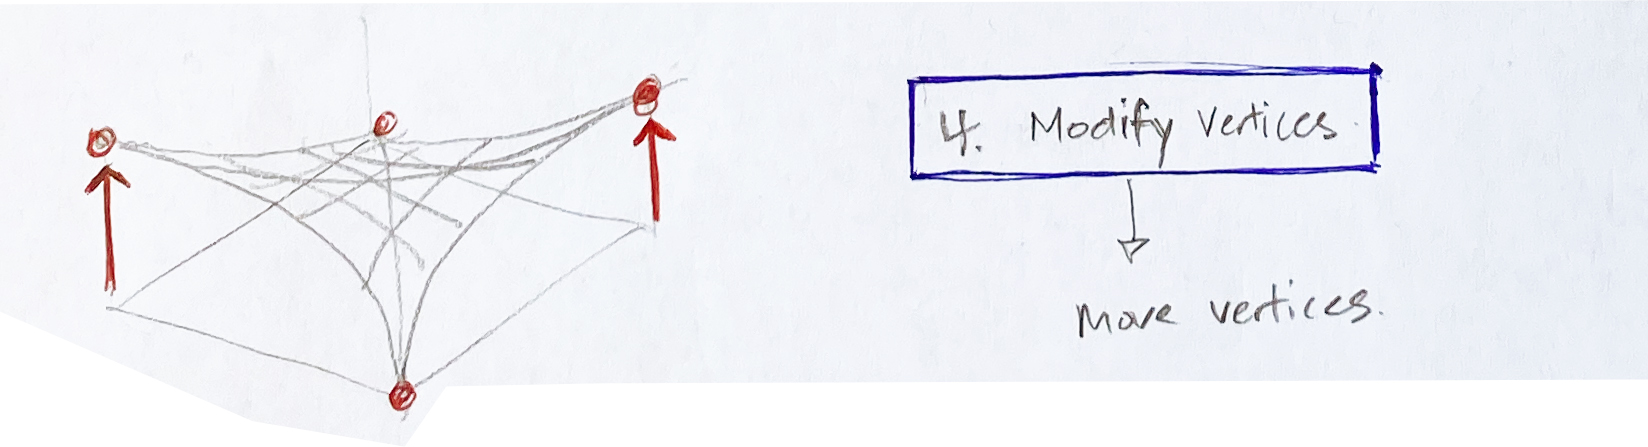 4. Modify Vertices.
Move vertices.